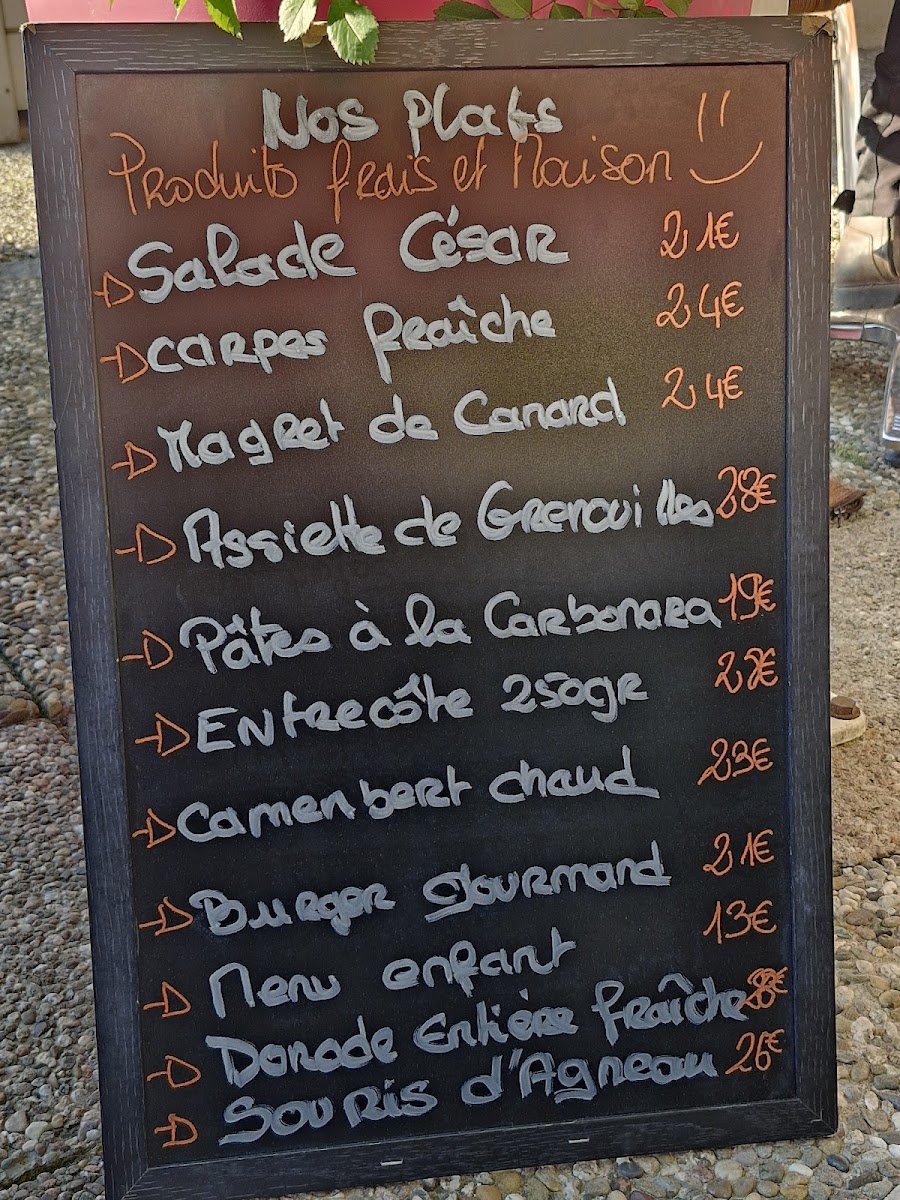 Nos Plats
Produits frais et Maison
Salade César 21€
Carpes fraîche 24€
Magret de Canard 24€
Assiette de Grenouilles 28€
Pâtes à la Carbonara 19€
Entrecôte 250gr
Camembert chaud 23€
Burger gourmand 21€
Menu enfant 13€
Dorade Entière fraîche
Souris d'Agneau 26€